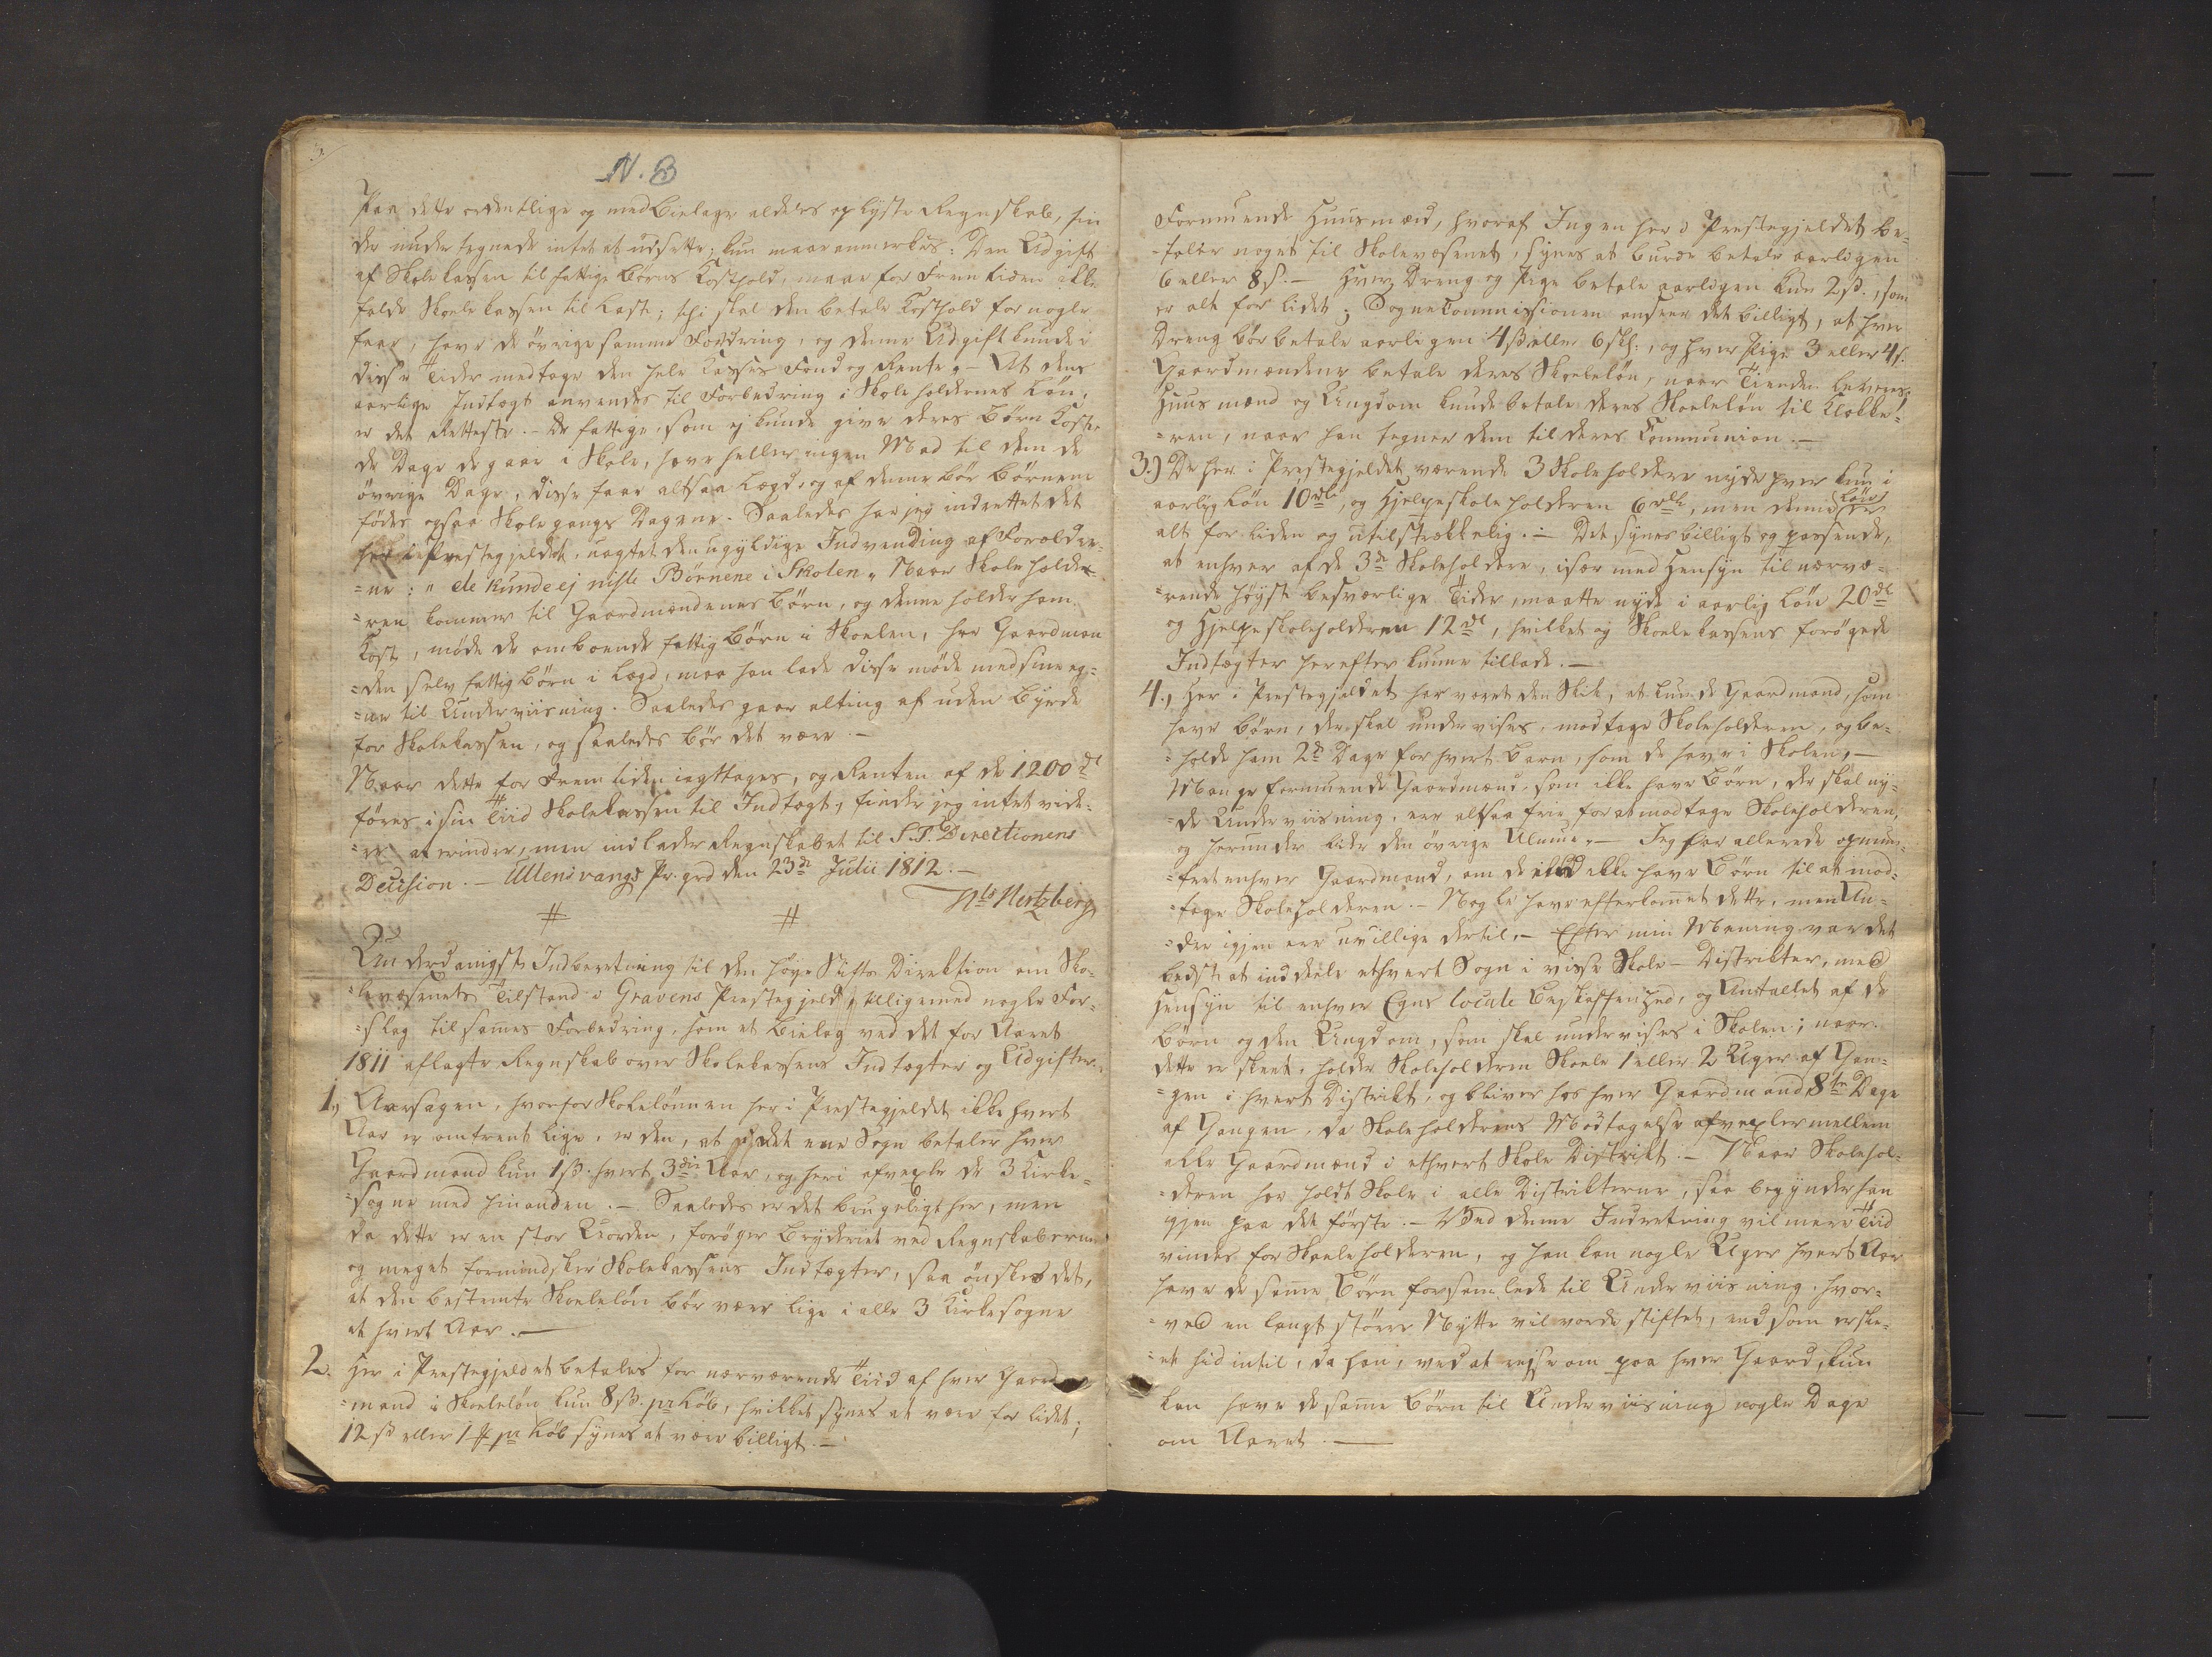 N. B
Paa dette ordentlige og med Bielage aldeles oplyste Regnskab, fin
der undertegnede intet at udsette; kun maae anmerkes: Den Udgift
af Skolekassen til fattige Børns Kosthold, maae for Fremtiden ikke
falde Skolekassen til Last; thi skal den betale Kosthold for nogle
faae, have de øvrige samme Fordring, og denne Udgift kunde i
disse Tider medtage den hele Casses Fond og Rente. – At dens
aarlige Indtægt anvendes til Forbedring i Skoleholdernes Løn,
er det Retteste. – De fattige, som ej kunde give deres Børn Kost,
de Dage de gaae i Skole, have heller ingen Mad til dem de
øvrige Dage, disse faae altsaa Lægd, og af denne bør Børnene
fødes ogsaa Skolegangs Dagene. Saaledes har jeg indrettet det
her i Prestegjeldet, uagtet den ugyldige Indvending af Forældre-
=ne: "de kunde ej miste Børnene i Skolen" Naar Skoleholde-
=ren kommer til Gaardmændenes Børn, og denne holder ham
Kost, møde de omboende fattig Børn i Skolen, har Gaardman
=den selv fattig Børn i Lægd, maa han lade disse møde med sine eg=
=ne til Underviisning. Saaledes gaar alting af uden Byrde
for Skolekassen, og saaledes bør det være. –
Naar dette for Fremtiden iagttages, og Renten af de 1200 dl
føres i sin Tiid Skolekassen til Indtægt, finder jeg intet vide=
=re at erindre, men indlader Regnskabet til S. T. Directionens
Decision. – Ullensvangs Pr.grd den 23de Julii 1812. –
Nls Hertzberg
# #
Underdanigst Indberetning til den høye Stifts Direktion om Sko=
=levæsenets Tilstand i Gravens Prestegjeld, tilligemed nogle For=
=slag til sammes Forbedring, som et Bielag ved det for Aaret
1811 aflagte Regnskab over Skolekassens Indtægter og Udgifter.
1.) Aarsagen, hvorfor Skolelønnen her i Prestegjeldet ikke hvert
Aar er omtrent lige, er den, at i det ene Sogn betaler hver
Gaardmand kun 1 ß. hvert 3die Aar, og heri afvexle de 3 Kirke=
=sogne med hinanden. – Saaledes er det brugeligt her, men
da dette er en stor Uorden, forøger Bryderiet ved Regnskaberne
og meget formindsker Skolekassens Indtægter, saa ønskes det,
at den bestemte Skoleløn bør være lige i alle 3 Kirkesogne
et hvert Aar. –
2. Her i Prestegjeldet betales for nærværende Tiid af hver Gaard
=mand i Skoleløn kun 8 ß. pr Løb, hvilket synes at være for lidet;
12 ß eller 1 # pr Løb synes at være billigt. –
Formuende Huusmænd, hvoraf Ingen her i Prestegjeldet be=
=taler noget til Skolevæsenet, synes at burde betale aarligen
6 eller 8 s. – Hver Dreng og Pige betale aarligen kun 2 ß., som
er alt for lidet; Sognekommissionen ansees det billigt, at hver
Dreng bør betale aarligen 4 ß eller 6 skl:, og hver Pige 3 eller 4 s.
Gaardmændene betale deres Skoleløn, naar Tienden leveres.
Huusmænd og Ungdom kunde betale deres Skoleløn til Klokke=
=ren, naar han tegner dem til deres Communion. –
3.) De her i Prestegjeldet værende 3 Skoleholdere nyde hver kun i
aarlig Løn 10 rdl, og Hjelpeskoleholderen 6 rdl, men denne Løn er
alt for liden og utilstrækkelig. – Det synes billigt og passende,
at enhver af de 3de Skoleholdere, især med Hensyn til nærvæ=
=rende høyst besværlige Tider, maatte nyde i aarlig Løn 20 dl
og Hjelpeskoleholderen 12 dl, hvilket og Skolekassens forøgede
Indtægter herefter kunne tillade. –
4.) Her i Prestegjeldet har været den Skik, at kun de Gaardmænd, som
have Børn, der skal undervises, modtage Skoleholderen, og be=
=holde ham 2de Dage for hvert Barn, som de have i Skolen. –
Mange formuende Gaardmænd, som ikke have Børn, der skal ny=
=de Underviisning, ere altsaa frie for at modtage Skoleholderen,
og herunder lider den øvrige Almue. – Jeg har allerede opmun=
=tret enhver Gaardmand, om de ikke have Børn til at mod=
=tage Skoleholderen. – Nogle have efterkommet dette, men An=
=dre igjen ere uvillige dertil. – Efter min Mening var det
bedst at inddeele ethvert Sogn i visse Skole-Distrikter, med
Hensyn til enhver Egns locale Beskaffenhed, og Antallet af de
Børn og den Ungdom, som skal undervises i Skolen; naar
dette er skeet, holder Skoleholderen Skole 1 eller 2 Uger af Gan=
=gen i hvert Distrikt, og bliver hos hver Gaardmand 8te Dage
af Gangen, da Skoleholderens Modtagelse afvexler mellem
alle Gaardmænd i ethvert Skole Distrikt. – Naar Skolehol=
=deren har holdt Skole i alle Distrikterne, saa begynder han
igjen paa det første. – Ved denne Indretning vil mere Tiid
vindes for Skoleholderen, og han kan nogle Uger hvert Aar
have de samme Børn forsamlede til Underviisning, hvor=
=ved en langt større Nytte vil vorde stiftet, end som er ske=
=et hidintil, da han, ved at reise om paa hver Gaard, kun
kan have de samme Børn til Underviisning nogle Dage
om Aaret. –